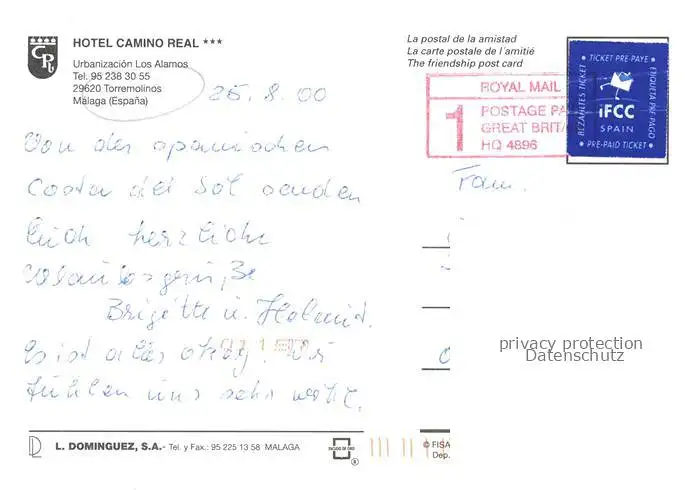 HOTEL CAMINO REAL ***
Urbanización Los Alamos
Tel. 95 238 30 55
29620 Torremolinos
Málaga (España)
CR
25. 8. 00
Von der spanischen
Costa del Sol senden
Euch herzliche
Urlaubsgrüße
Brigitte u. Helmut.
Es ist alles okay. Wir
fühlen uns sehr wohl.
La postal de la amistad
La carte postale de l'amitié
The friendship post card
ROYAL MAIL
1
POSTAGE PA
GREAT BRITA
HQ 4896
• TICKET PRE PAYE •
BEZAHLTES TICKET
ETIQUETA PRE-PAGO
iFCC
SPAIN
• PRE-PAID TICKET •
Fam.
privacy protection
Datenschutz
L. DOMINGUEZ, S.A.- Tel. y Fax.: 95 225 13 58 MALAGA
®
© FISA
Dep.